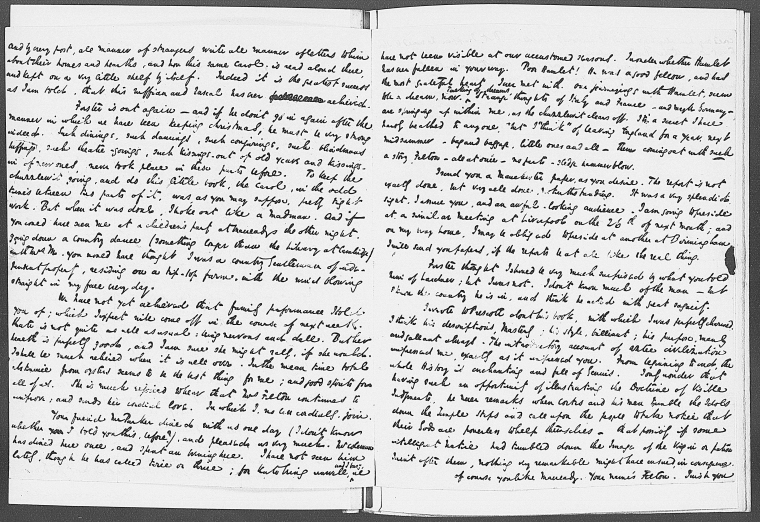 and by every post, all manner of strangers write all manner of letters to him
about their homes and hearths, and how this same Carol is read aloud there
and kept on a very little shelf by itself. Indeed it is the greatest success
as I am told, that this ruffian and rascal has ever achieved.
Forster is out again – and if he don't go in again after the
manner in which we have been keeping Christmas, he must be very strong
indeed. Such dinings, such dancings, such conjurings, such blindmans
buffings, such theatre-goings, such kissings-out of old years and kissings-
in of new ones, never took place in these parts before. To keep the
Chuzzlewit going, and do this little book, the Carol, in the odd
times between two parts of it, was as you may suppose, pretty tight
work. But when it was done I broke out like a Madman. And if
you could have seen me at a children's party at Macreadys the other night,
going down a country dance (something longer than the Library at Cambridge)
with Mrs M. you would have thought I was a country Gentleman of inde-
pendent property, residing on a tip-top farm, with the wind blowing
straight in my face every day.
We have not yet achieved that family performance I told
you of; which I expect will come off in the course of next week.
Kate is not quite as well as usual; being nervous and dull. But her
health is perfectly good, and I am sure she might rally, if she would.
I shall be much relieved when it is well over. In the mean time total
abstinence from oysters seems to be the best thing for me; and good spirits for
all of us. She is much rejoiced to hear that Mrs Felton continues to
improve; and sends her cordial love. In which I, no less cordially, join.
Your friend Mr Parker dined with us one day (I don't know
whether I told you this, before), and pleased us very much. Mr Coleman
has dined here once, and spent an evening here. I have not seen him
lately, though he has called twice or thrice; for Kate being unwell, and I busy, we
have not been visible at our accustomed seasons. I wonder whether Hamlet
has ever fallen in your way. Poor Hamlet! He was a good fellow, and had
the most grateful heart I ever met with. Our journeyings with Hamlet, seem
to be a dream, now. Talking of dreams, strange thoughts of Italy and France – and maybe Germany –
are springing up within me, as the Chuzzlewit clears off. It's a secret I have
hardly breathed to anyone, but I "think" of leaving England for a year, next
midsummer – bag and baggage, little ones and all – then coming out with such
a story, Felton – all at once – no parts – sledge hammer blow.
I send you a Manchester paper, as you desire. The report is not
exactly done, but very well done, notwithstanding. It was a very splendid
sight, I assure you, and an awful-looking audience. I am going to preside
at a similar meeting at Liverpool on the 26th of next month; and
on my way home, I may be obliged to preside at another at Birmingham.
I will send you papers, if the reports be at all like the real thing.
Forster thought I should be very much surprised by what you told
him of Landnes; but I was not. I don't know much of the man – but
I know the country he is in, and think he acted with great sagacity.
I wrote to Prescott about his book, with which I was perfectly charmed.
I think his descriptions, Masterly; his style, brilliant; his purpose, manly
and gallant always. The introductory account of Aztec civilization
impressed me, exactly as it impressed you. From beginning to end, the
whole History is enchanting and full of Genius. I only wonder that,
having such an opportunity of illustrating the Doctrine of Visible
Judgments, he never remarks when Cortes and his men tumble the Idols
down the Temple steps and call upon the people to take notice that
their Gods are powerless to help themselves – that possibly if some
intelligent Native had tumbled down the Image of the Virgin or patron
Saint after them, nothing very remarkable might have ensued in consequence.
Of course you like Macready. Your name's Felton. I wish you